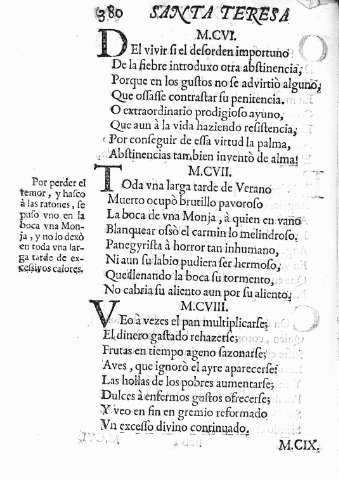 380 SANTA TERESA
M.CVI.
DEl vivir si el desorden importuno
De la fiebre introduxo otra abstinencia,
Porque en los gustos no se advirtiò alguno,
Que ossasse contrastar su penitencia.
O extraordinario prodigioso ayuno,
Que aun à la vida haziendo resistencia,
Por conseguir de essa virtud la palma,
Abstinencias tambien inventò de alma!
M.CVII.
TOda vna larga tarde de Verano
Muerto ocupò brutillo pavoroso
La boca de vna Monja, à quien en vano
Blanquear osiò el carmin lo melindroso.
Panegyrista à horror tan inhumano,
Ni aun su labio pudiera ser hermoso,
Que llenando la boca su tormento,
No cabria su aliento aun por su aliento.
Por perder el
temor, y hasco
à las ratones, se
puso vno en la
boca vna Mon-
ja, y no lo dexò
en toda vna lar-
ga tarde de ex-
cessivos calores.
M.CVIII.
VEo à vezes el pan multiplicarse;
El dinero gastado rehazerse;
Frutas en tiempo ageno sazonarse;
Aves, que ignorò el ayre aparecerse;
Las hollas de los pobres aumentarse;
Dulces à enfermos gustos ofrecerse;
Y veo en fin en gremio reformado
Vn excesso divino continuado.
M.CIX.